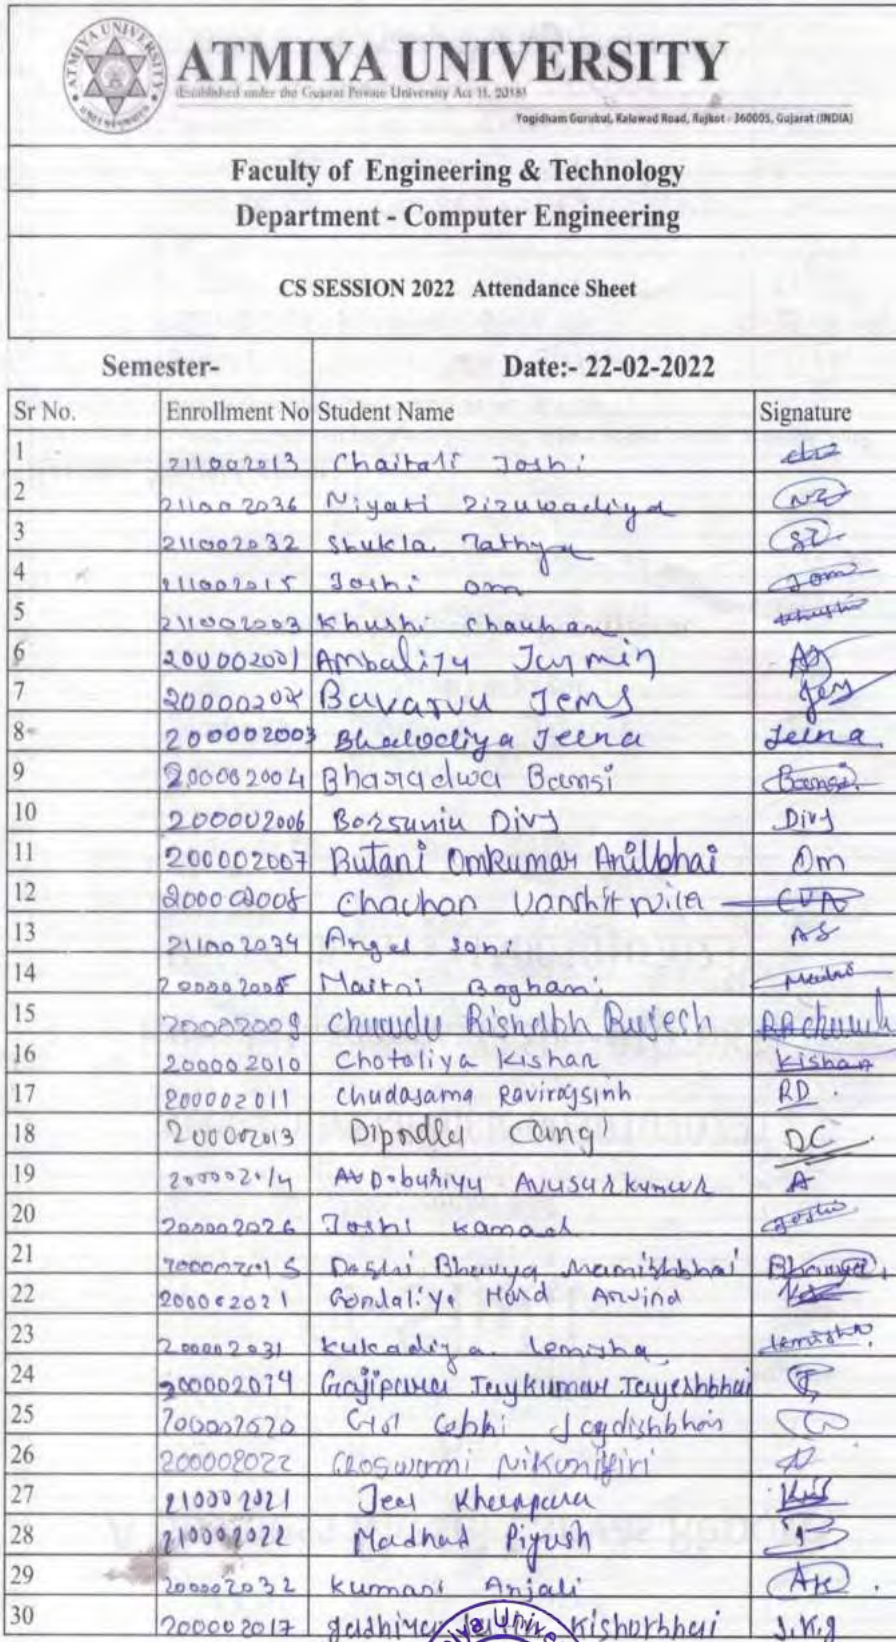 ATMIYA UNIVERSITY
ATMIYA UNIVERSITY
(Established under the Gujarat Private University Act 11, 2018)
Yogidham Gurukul, Kalawad Road, Rajkot - 360005, Gujarat (INDIA)
Faculty of Engineering & Technology
Department - Computer Engineering
CS SESSION 2022 Attendance Sheet
Semester- Date:- 22-02-2022
Sr No. Enrollment No Student Name Signature
1 211002013 Chaitali Joshi
2 211002036 Niyati Zizuwadiya NZ
3 211002032 Shukla Tathya
4 211002015 Joshi Om Jom
5 211002003 Khushi Chauhan Khushi
6 200002001 Ambaliya Jaymin AJ
7 Bavarva Jems Jems
8 200002003 Bhalodiya Jeena Jeena
9 200002004 Bharadwa Bansi Bansi
10 200002006 Borsaniu Divy Divy
11 200002007 Butani Omkumar Anilbhai Om
12 200002008 Chachan CVN
13 211002034 Angel Soni AS
14 200002005 Maitri Boghani Maitri
15 200002009 Rishabh Rajesh
16 200002010 Chotaliya Kishan Kishan
17 200002011 Chudasama Ravirajsinh RD
18 200002013 DC
19 200002014 A
20 200002026 Joshi Kamad Joshi
21 200002015 Doshi Bhavya Bhavya
22 200002021 Gondaliya Hard Arvind
23 200002031 Kukadiya Lemisha Lemisha
24 Gajipara Jaykumar Jayeshbhai
25 200002020 Gol Jagdishbhai
26 200002022 Goswami
27 210002021 Jeel Kheenpara
28 210002022 Madhad Piyush
29 200002032 Kumari Anjali AK
30 200002017 Kishorbhai J.K.g